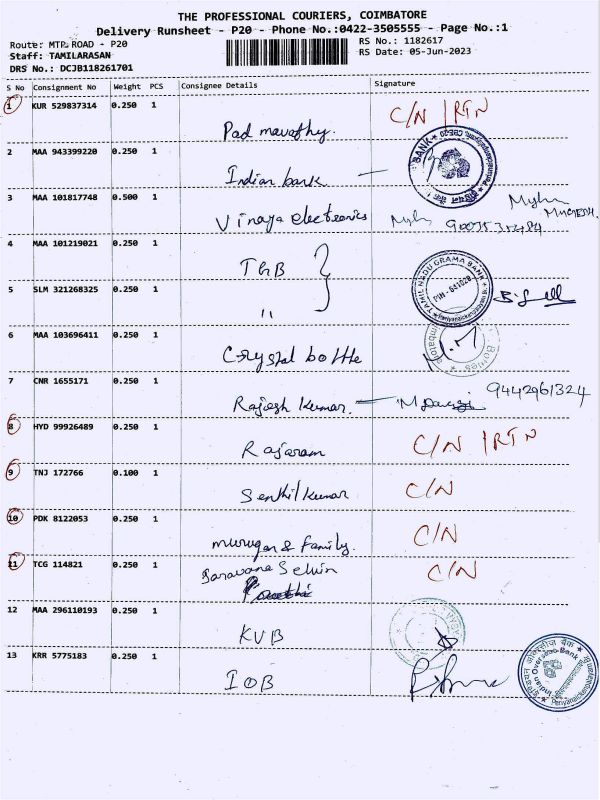 THE PROFESSIONAL COURIERS, COIMBATORE
Delivery Runsheet - P20 - Phone No.:0422-3505555 - Page No.:1
Route: MTP ROAD - P20
RS No.: 1182617
Staff: TAMILARASAN
RS Date: 05-Jun-2023
DRS No.: DCJB118261701
S No Consignment No Weight PCS Consignee Details Signature
1 KUR 529837314 0.250 1
Padmavathy. C/N | RTN
2 MAA 943399220 0.250 1
Indian bank
BANK
3 MAA 101817748 0.500 1
Vinaya electronics
4 MAA 101219021 0.250 1
TGB
5 SLM 321268325 0.250 1
"
TAMIL NADU GRAMA BANK
PIN - 641020
6 MAA 103696411 0.250 1
Crystal bottle
7 CNR 1655171 0.250 1
Rajesh Kumar. 9442961324
8 HYD 99926489 0.250 1
Rajaram C/N | RTN
9 TNJ 172766 0.100 1
Senthil Kumar C/N
10 PDK 8122053 0.250 1
murugan & Family. C/N
11 TCG 114821 0.250 1
Saravana Selvin C/N
12 MAA 296110193 0.250 1
KVB
13 KRR 5775183 0.250 1
IOB
Indian Overseas Bank